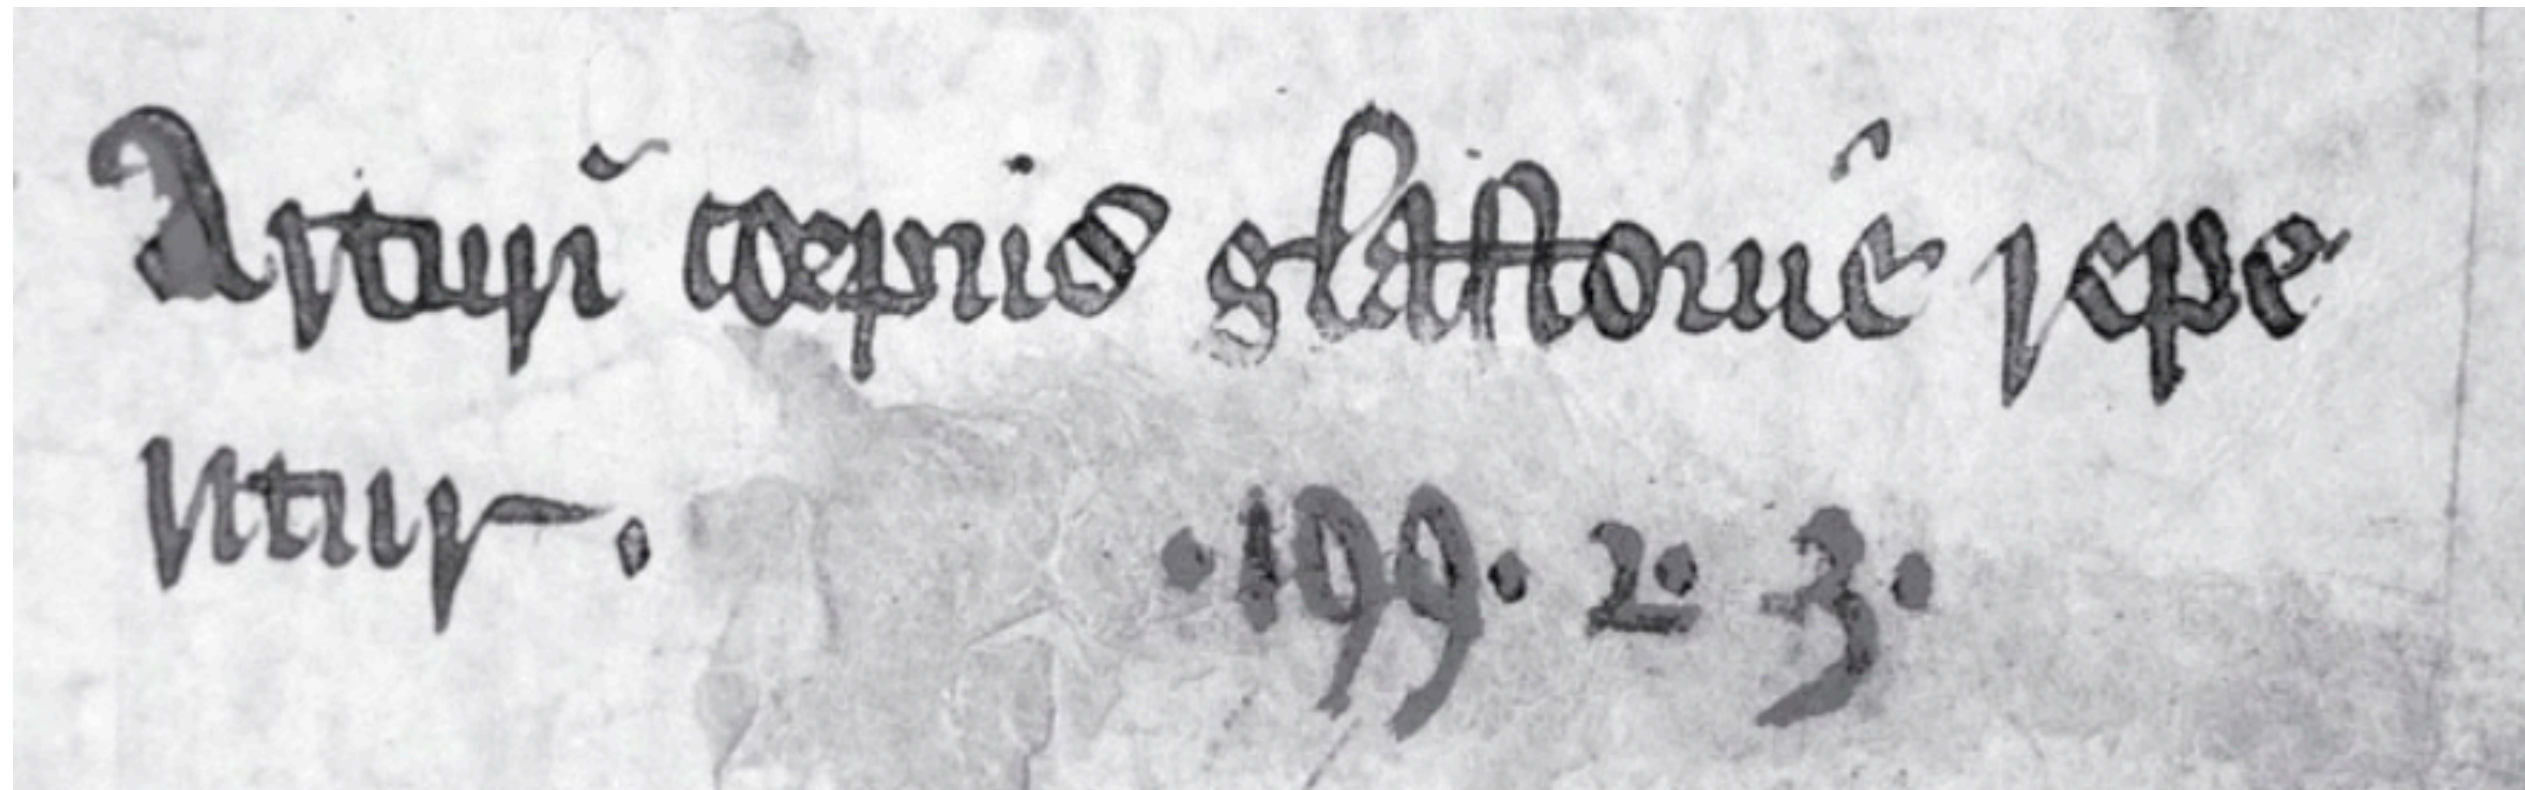 Arturi corpus glastonie repe
ritur.
.199. 2. 3.